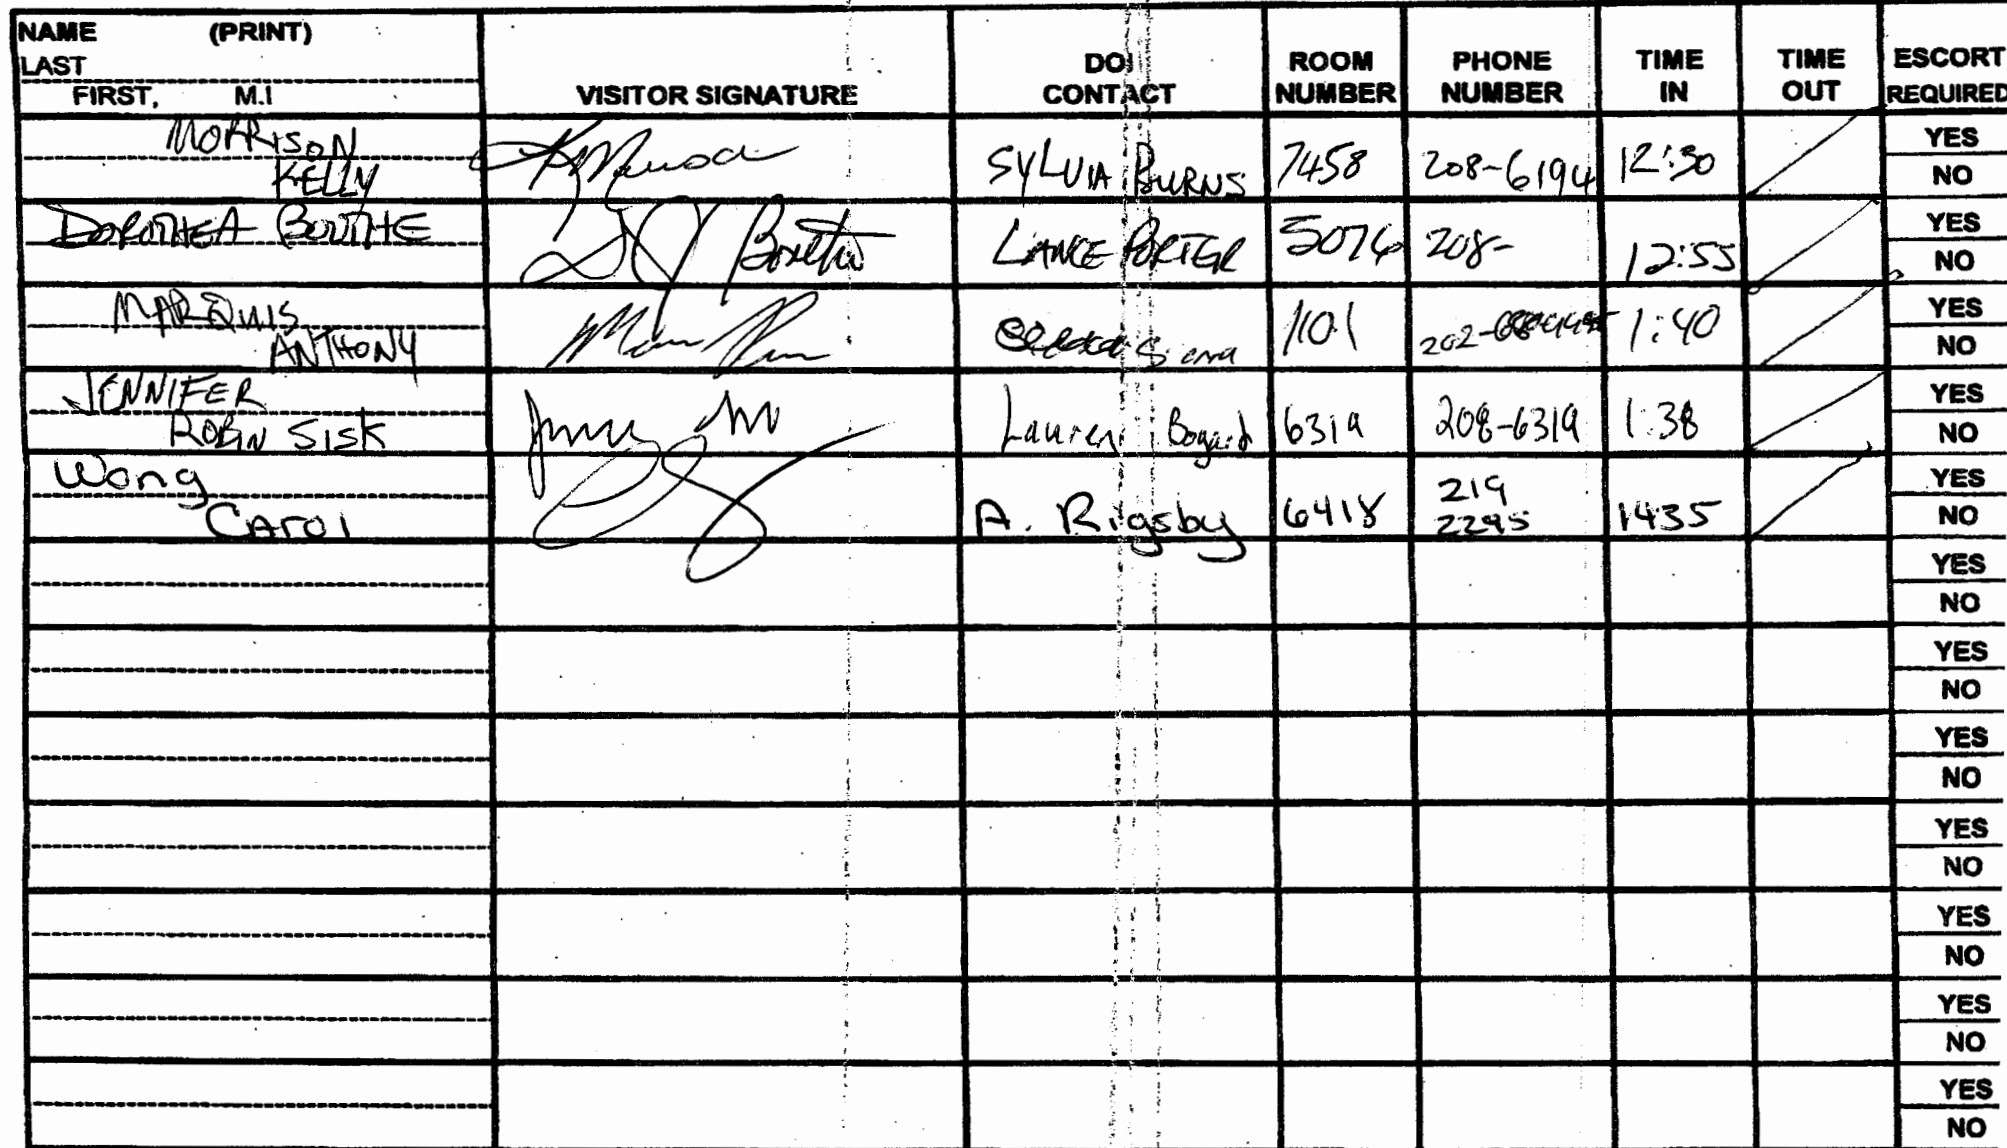 NAME (PRINT)
LAST
FIRST, M.I
VISITOR SIGNATURE
DOI
CONTACT
ROOM
NUMBER
PHONE
NUMBER
TIME
IN
TIME
OUT
ESCORT
REQUIRED
MORRISON
KELLY
SYLVIA BURNS
7458
208-6194
12:30
YES
NO
DOROTHEA BOOTHE
LANCE PORTER
5076
208-
12:55
YES
NO
MARQUIS
ANTHONY
1101
202-
1:40
YES
NO
JENNIFER
ROBIN SISK
Lauren Bogard
6319
208-6319
1:38
YES
NO
Wong
CAROl
A. Rigsby
6418
219
2295
1435
YES
NO
YES
NO
YES
NO
YES
NO
YES
NO
YES
NO
YES
NO
YES
NO